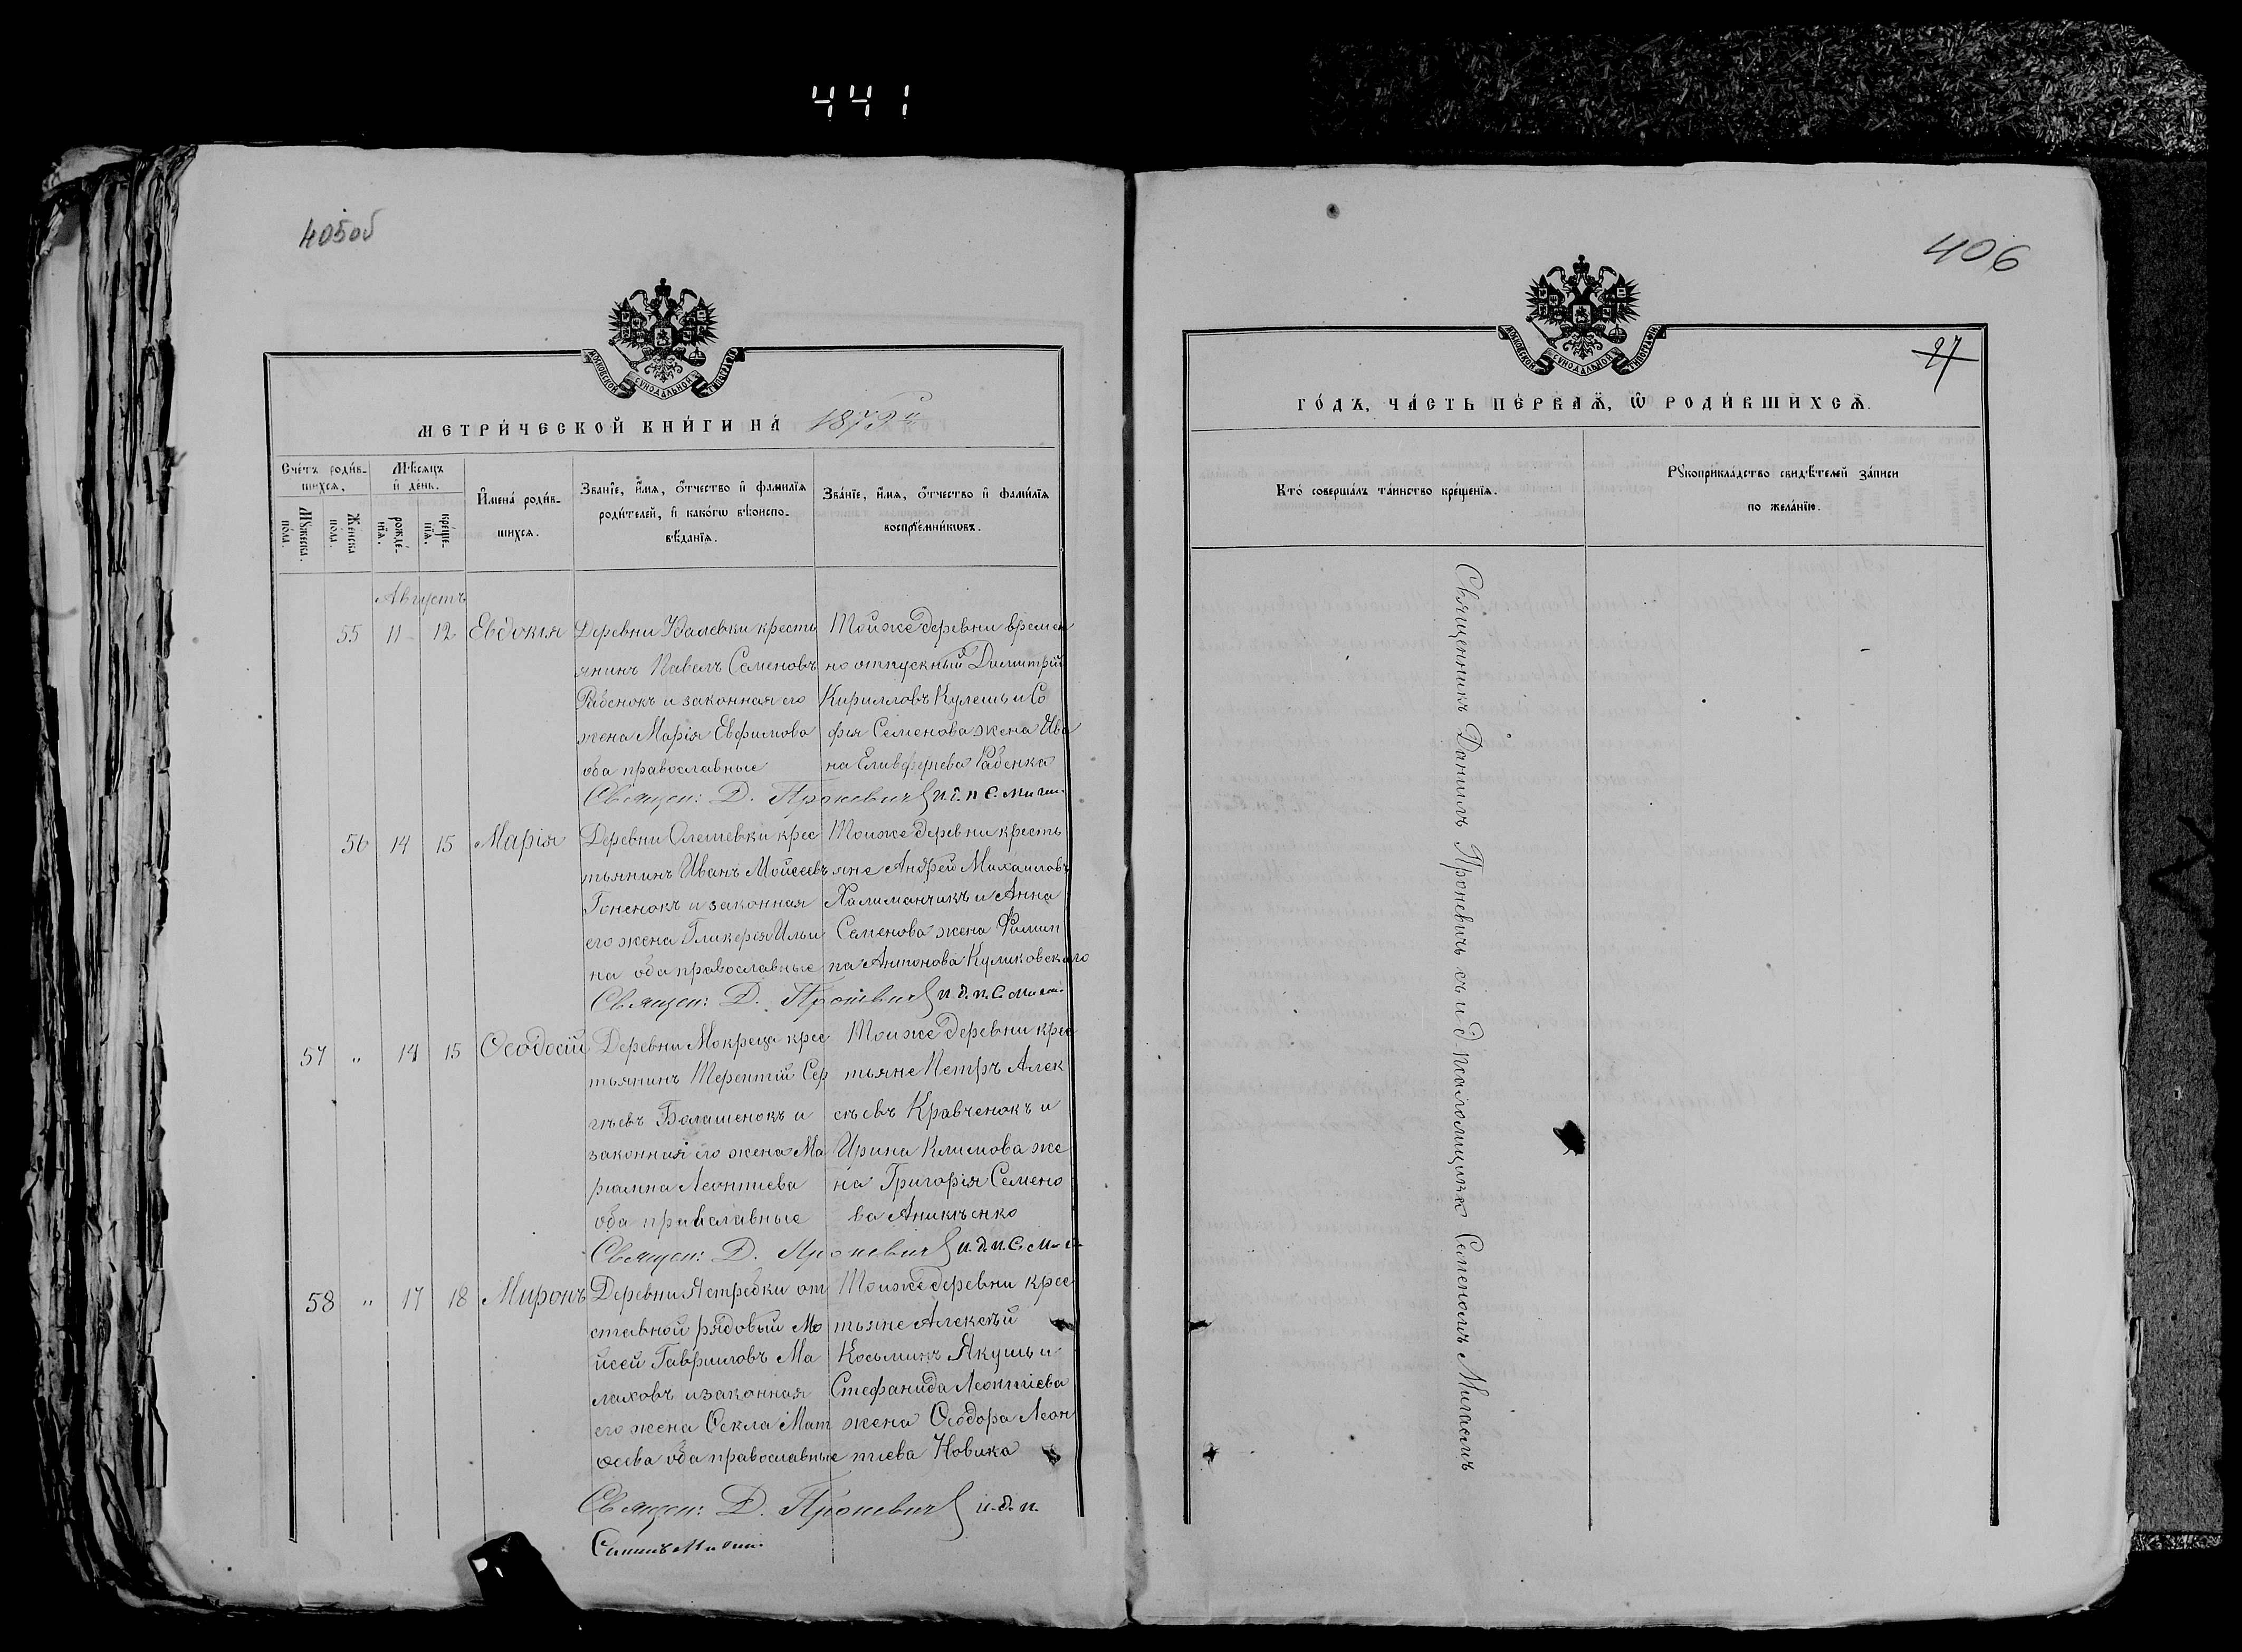 441
405об
МЕТРИ́ЧЕСКОЙ КНИ́ГИ НА́ 1873й
Сче́тъ роди́в-
шихся.
Мѣ́сяцъ
и҆ де́нь.
Мꙋ́жеска по́ла.
Же́нска по́ла.
рожде́-нїѧ.
креще́-нїѧ.
И҆мена́ роди́в-
шихсѧ.
Зва́нїе, и҆́мѧ, ѻ҆́тчество и҆ фами́лїѧ
роди́телей, и҆ како́гѡ вѣ́роиспо-
вѣ́данїѧ.
Зва́нїе, и҆́мѧ, ѻ҆́тчество и҆ фами́лїѧ
воспрїе́мникѡвъ.
Августъ
55 11 12 Евдокія Деревни Юалевки кресть
янинъ Павелъ Семеновъ
Рабенокъ и законная его
жена Марія Евфимова
оба православные
Тойже деревни времен
но отпускный Димитрій
Кирилловъ Кулешъ и Со
фія Семенова жена Ива
на Елевферіева Рабенка
Священ: Д. Проневич
56 14 15 Марія Деревни Олешевки крес
тьянинъ Иванъ Мойсеевъ
Гоненокъ и законная
его жена Гликерія Ильи
на оба православные
Тойже деревни кресть
яне Андрей Михаиловъ
Халиманчикъ и Анна
Семенова жена Филип
па Антонова Куликовскаго
Священ: Д. Проневич и.д.п.С.
57 " 14 15 Ѳеодосій Деревни Мокреца крес
тьянинъ Терентій Сер
гѣевъ Балашенокъ и
законная его жена Ма
ріамна Леонтиева
оба православные
Тойже деревни крес
тьяне Петръ Алек
сѣевъ Кравченокъ и
Ирина Климова же
на Григорія Семено
ва Аникѣенко
Священ: Д. Проневич и.д.п.С.
58 " 17 18 Миронъ Деревни Ястребки от
ставной рядовый Мо
исей Гавриловъ Ма
лаховъ и законная
его жена Ѳекла Мат
ѳеева оба православные
Тойже деревни крес
тьяне Алексѣй
Косьминъ Якушъ и
Стефанида Леонтіева
жена Ѳеодора Леон
тиева Новика
Священ: Д. Проневич и.д.п.
406
27
ГО́ДЪ, ЧА́СТЬ ПЕ́РВАѦ, Ѡ҆ РОДИ́ВШИХСѦ.
Кто̀ соверша́лъ та́инство креще́нїѧ.
Рꙋкоприкла́дство свидѣ́телей за́писи
по жела́нїю.
Священникъ Даніилъ Проневичъ съ и д псаломщика Семеномъ